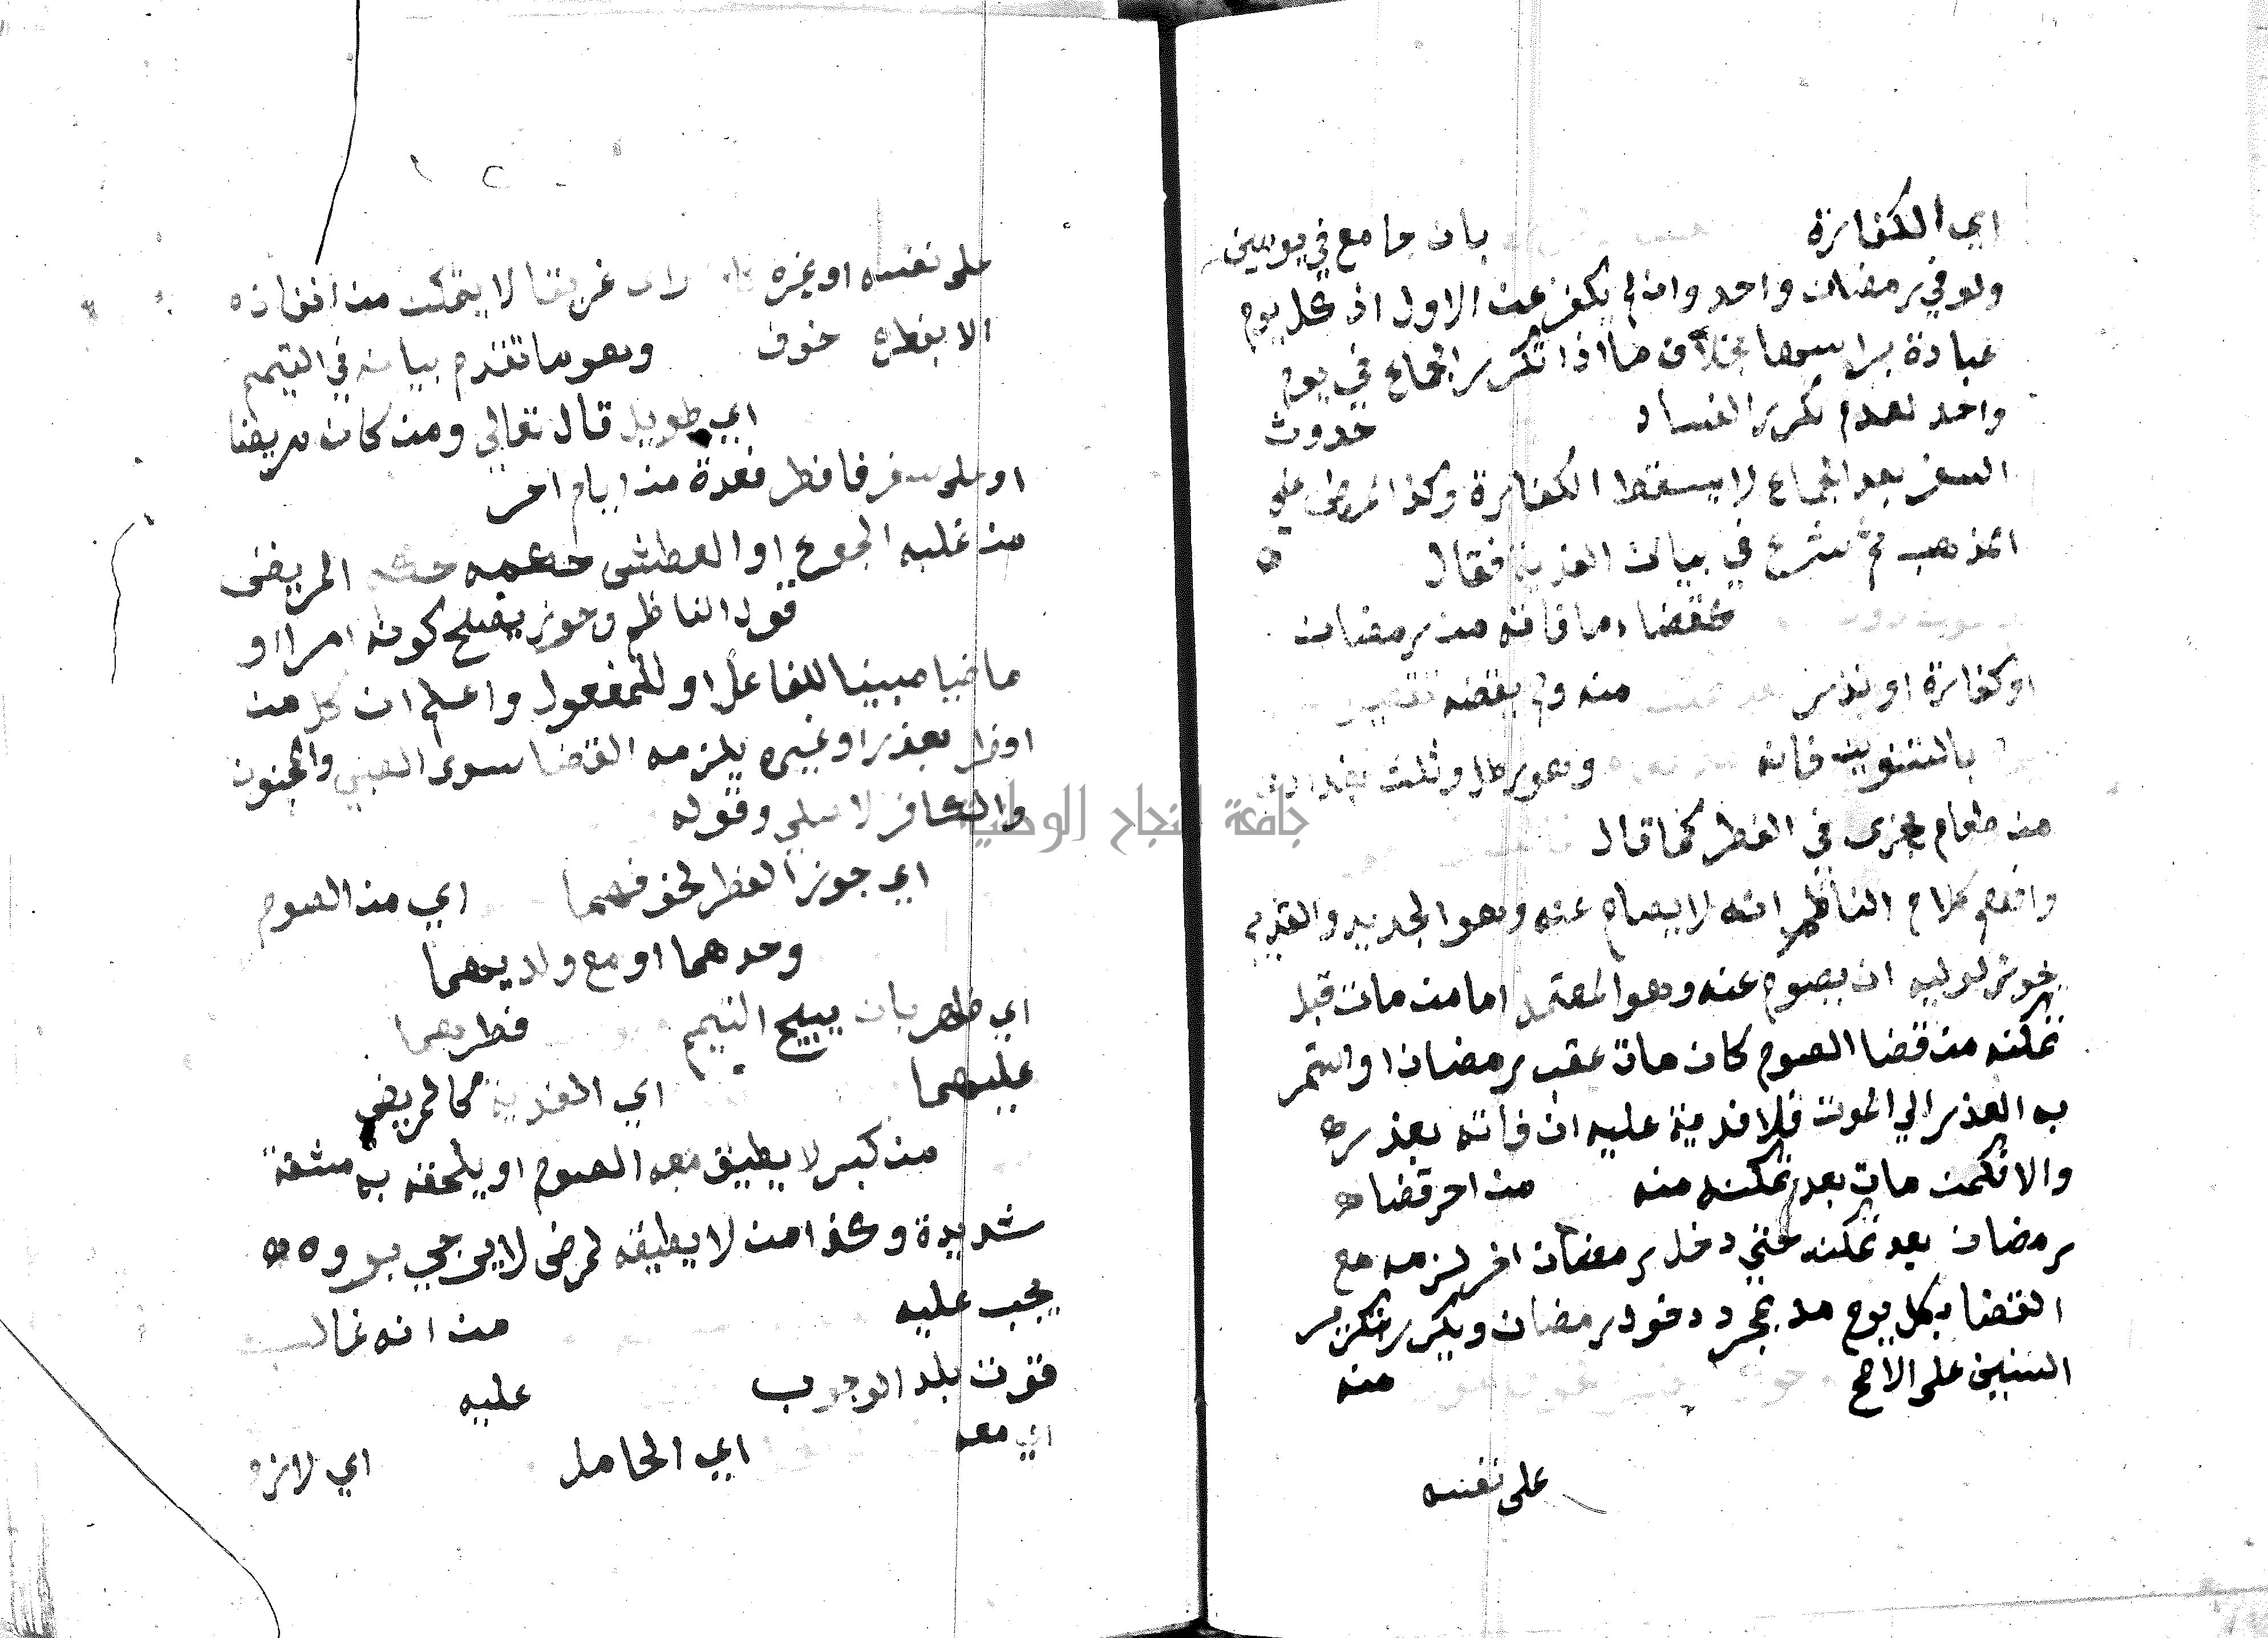 اي الكفارة بان جامع في يومين
ولو في رمضان واحد وان لم يكفر عن الاول اذ كل يوم
عبادة براسها بخلاف ما اذا تكرر الجماع في يوم
واحد لعدم تكرر الفساد حدوث
السفر بعد الجماع لا يسقط الكفارة وكذا المرض علي
المذهب ثم شرع في بيان الفدية فقال
كقضاء ما فاته من رمضان
او كفارة او نذر منه ولم يقضه
بالتنوين فانه وهو رطل وثلث
من طعام يجزي في الفطر كما قال
وافهم كلام الناظم انه لا يصام عنه وهو الجديد والقديم
يجوز لوليه ان يصوم عنه وهو المعتمد اما من مات قبل
تمكنه من قضا الصوم كان مات عقب رمضان او استمر
به العذر الي الموت فلا فدية عليه ان فاته بعذر
والا فكمن مات بعد تمكنه منه من اخر قضا
رمضان بعد تمكنه حتي دخل رمضان اخر لزمه مع
القضا بكل يوم مد بمجرد دخول رمضان ويتكرر بتكرر
السنين علي الاصح منه
علي نفسه
علي نفسه او غيره غريقا لا يتمكن من انقاذه
الا بفطره خوف وهو ما تقدم بيانه في التيمم
اي طويل قال تعالي ومن كان مريضا
او علي سفر فافطر فعدة من ايام اخر
من غلبه الجوع او العطش حكمه حكم المريض
قول الناظم وجوز يصلح كونه امرا او
ماضيا مبينا للفاعل او للمفعول واعلم ان كل من
افطر بعذر او غيره يلزمه القضا سوي الصبي والمجنون
والكافر الاصلي وقوله
اي جوز الفطر لخوفهما اي من الصوم
وحدهما او مع ولديهما
اي ظاهر بان يبيح التيمم فطرهما
عليهما اي الفدية كالمريض
من كبر لا يطيق معه الصوم او يلحقه به مشقة
شديدة وكذا من لا يطيقه لمرض لا يرجي بروه
يجب عليه من انه غالب
قوت بلد الوجوب عليه
اي معه اي الحامل اي
جامعة النجاح الوطنية